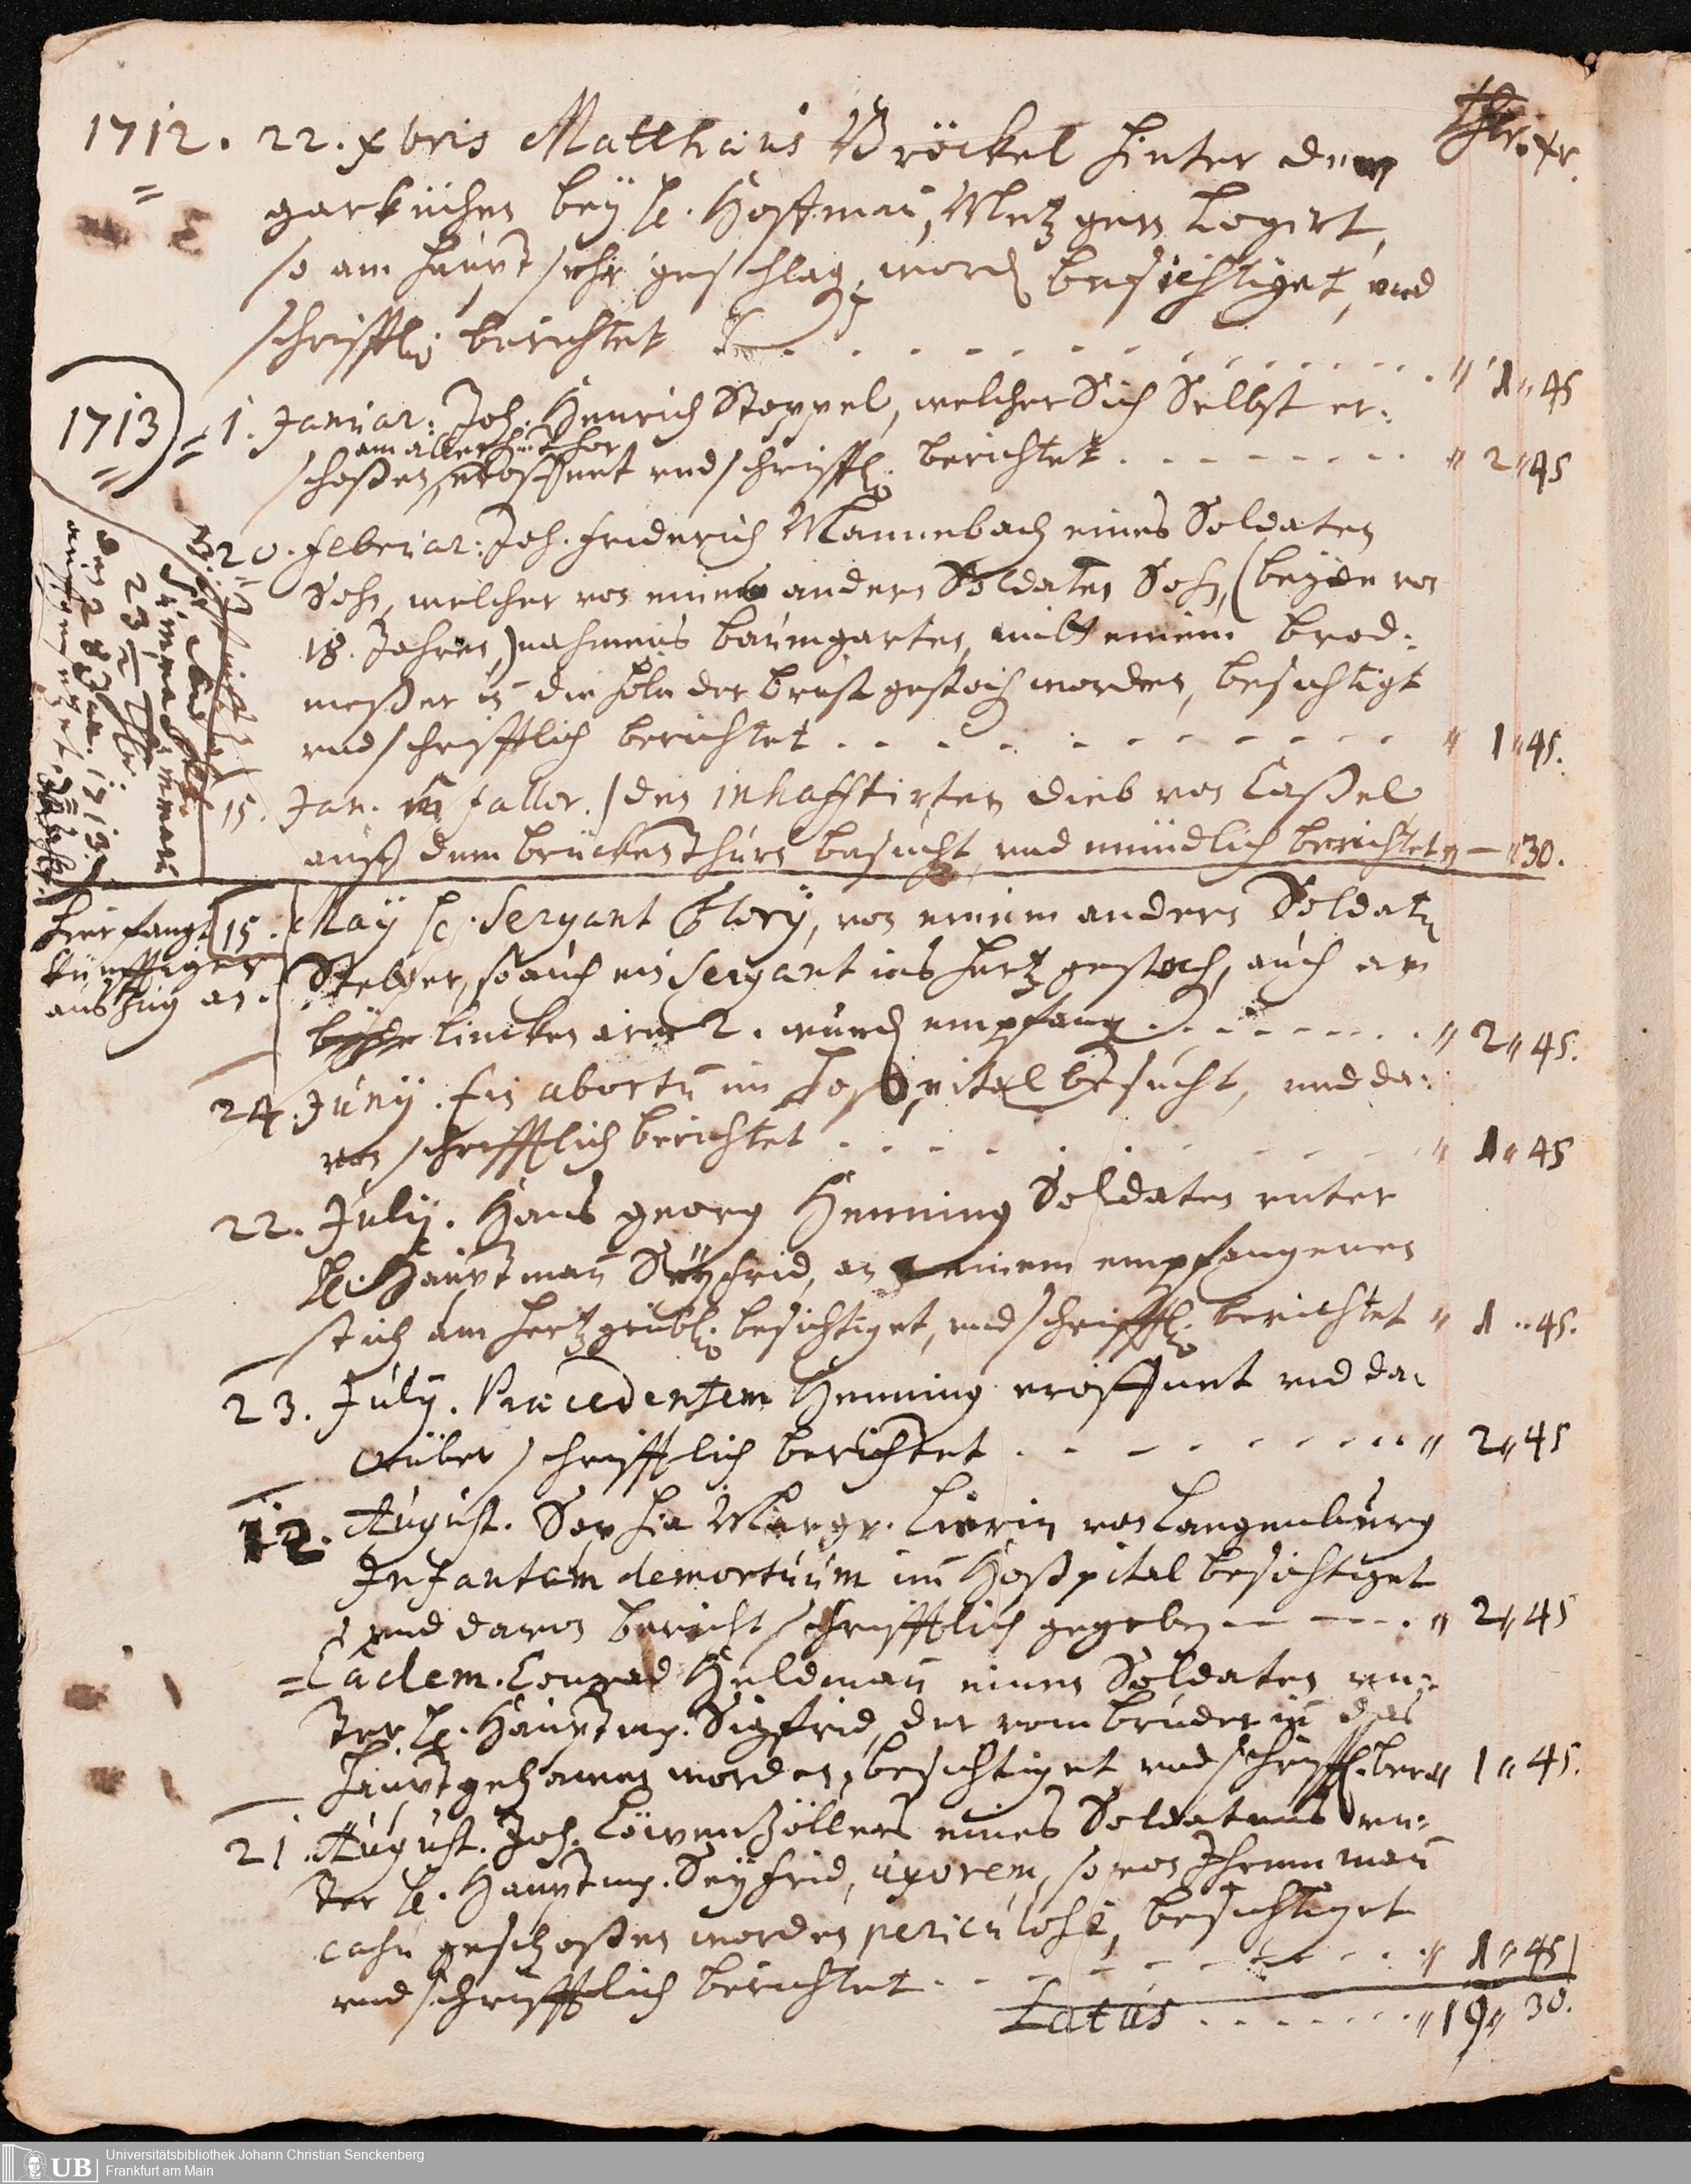 Thlr. xr.
1712. 22. xbris Matthaeus Bröckel hinter denen
garküchen bey H. Hoffman, Metzgern Logirt,
so am haupt sehr geschlag worden besichtiget, und
schrifftl. berichtet . . . . . . . . . . „ 1 „ 45
1713 1. Januar: Joh. Henrich Stoppel, welcher Sich Selbst er-
am allerh. thor
schoßen, eröffnet und schrifftl. berichtet . . . . . . „ 2 „ 45
20. Februar: Joh. Friderich Mannebach eines Soldaten
Sohn, welcher von eines andern Soldaten Sohn, (beyde von
18. Jahren,) nahmens Baumgarten, mitt einem brod-
meßer in die höle der brust gestoch worden, besichtigt
und schrifftlich berichtet . . . . . . . . „ 1 „ 45.
15. Jan. den inhafftirten dieb von Caßel
auff dem brückenthurn besucht und mündlich berichtet „ — „ 30.
hier fangt
künfftiger
auszug an.
15. May H. Sergant Glory, von einem andern Soldaten
so auch ein Sergant ins hertz gestoch, auch am
lincken arm 2. wund empfang . . . . . . „ 2 „ 45.
24. Juny. Ein abortum im Hospital besucht, und da-
von schrifftlich berichtet . . . . . . . . „ 1 „ 45
22. July. Hans georg Henning Soldaten unter
H. Hauptman Seyfrid, an einem empfangenen
stich am hertzgrübl. besichtiget, und schrifftl. berichtet „ 1 „ 45.
23. July. Praecedentem Henning eröffnet und da-
rüber schrifftlich berichtet . . . . . . . . „ 2 „ 45
12. August. Sophia Margr. Lierin von Langenburg
Infantem demortuum im Hoßpital besichtiget
und davon bericht schrifftlich gegeben — — . . „ 2 „ 45
= Eadem. Conrad Heldman einen Soldaten un-
ter H. Hauptm. Sigfrid, der vom bruder in das
Haupt gehauen worden, besichtiget und schrifftl. ber. „ 1 „ 45.
21. August. Joh. Löwenzöllers eines Soldatens un-
ter H. Hauptm. Seyfrid, uxorem, so von Ihrem man
casu geschoßen worden periculose, besichtiget
und schrifftlich berichtet . . . . . . . . „ 1 „ 45
Latus . . . . . . „ 19 „ 30.
Universitätsbibliothek Johann Christian Senckenberg
Frankfurt am Main
UB